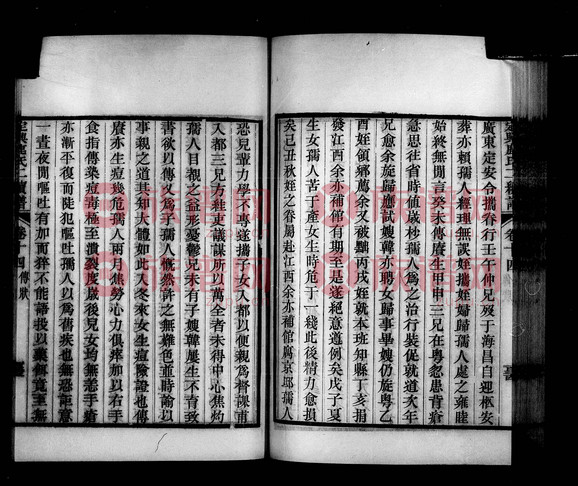 廣東定安令攜眷行壬午仲兄歿于海昌自迎柩安
葬亦賴孺人經理無誤姪攜姪婦歸孺人處之雍睦
始終無閒言癸未傳賡生甲申三兄在粵忽患背瘡
急思往省時値歲杪孺人爲之治行裝促就道次年
兄愈余旋歸應試嫂韓亦聘女歸事畢嫂仍旋粵乙
酉姪領鄉薦余又被黜丙戌姪就本班知縣丁亥捐
發江西余亦補館有期至是遂絕意進例矣戊子夏
生女孺人苦于產女生時危于一綫此後精力愈損
矣己丑秋姪之眷屬赴江西余亦補館廩京邸孺人
恐兒輩力學不專遂攜子女入都以便親爲督課甫
入都三兄方程吏議謀所以萬全者未得中心焦灼
孺人目覩之益形憂鬱兄未有子嫂韓屢生不育致
書欲以傳久爲子孺人慨然許之無難色並時諭以
事親之道其知大體如此入冬來女生痘險證也傳
賡亦生痘幾危孺人兩月焦勞心力俱瘁加以右手
食指傳染痘毒極至潰裂及歲後兒女均無恙手瘡
亦漸平復而徒犯嘔吐孺人以爲舊疾也無恐詎意
一晝夜閒嘔吐有加而猝不能語投以藥餌竟至無
卷十四
卷十四 傳狀